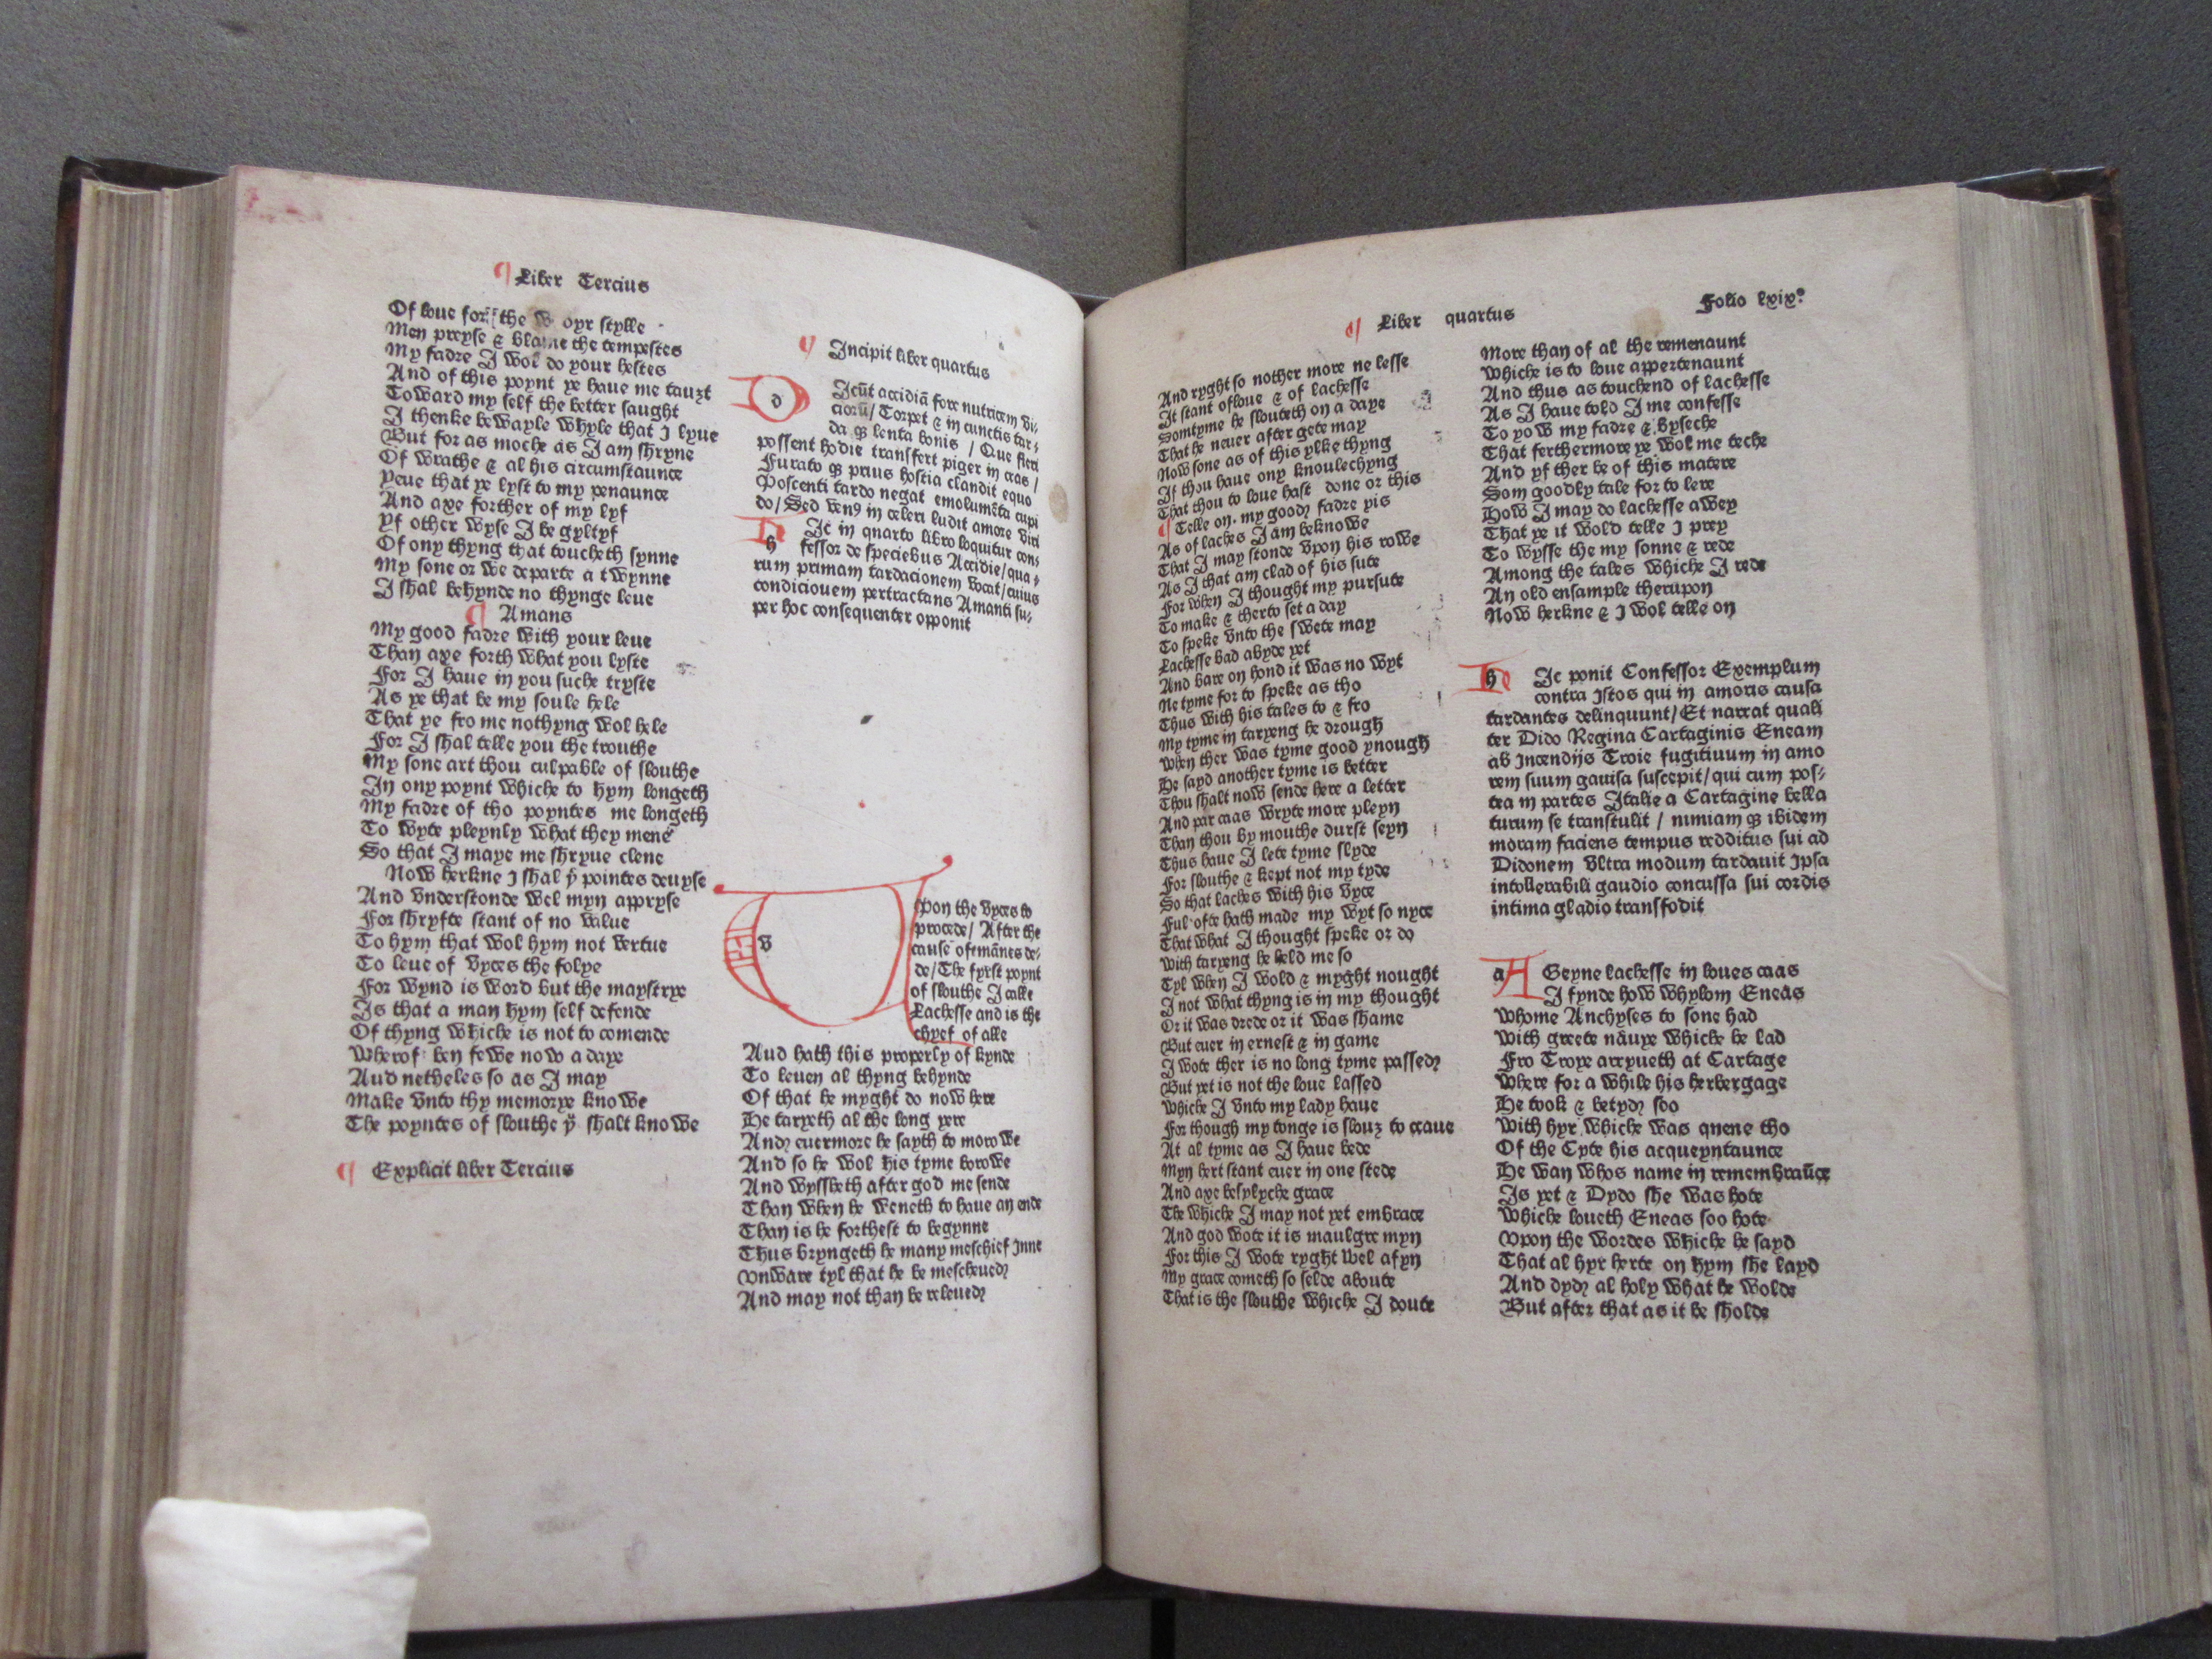 ¶ Liber Tercius
Of loue for the w oyr stylle
Men preyse & blame the tempestes
My fadre I wol do your hestes
And of this poynt ye haue me tauzt
Toward my self the better saught
I thenke bewayle whyle that I lyue
But for as moche as I am shryue
Of wrathe & al his circumstaunce
Yeue that ye lyst to my penaunce
And axe forther of my lyf
Yf other wyse I be gyltyf
Of ony thyng that toucheth synne
My sone or we departe a twynne
I shal behynde no thynge leue
¶ Amans
My good fadre with your leue
Than axe forth what you lyste
For I haue in you suche tryste
As ye that be my soule hele
That ye fro me nothyng wol hele
For I shal telle you the trouthe
My sone art thou culpable of slouthe
In ony poynt whiche to hym longeth
My fadre of tho poyntes me longeth
To wyte pleynly what they mene
So that I maye me shryue clene
Now herkne I shal yͤ pointes deuyse
And vnderstonde wel myn appryse
For shryfte stant of no value
To hym that wol hym not vertue
To leue of vyces the folye
For wynd is word but the maystrye
Is that a man hym self defende
Of thyng whiche is not to comende
Wherof ben fewe now a daye
Aud netheles so as I may
Make vnto thy memorye knowe
The poyntes of slouthe yͧ shalt knowe
¶ Explicit liber Tercius
¶ Incipit liber quartus
d Icūt accidiā fore nutricem vi⸗
ciorū/ Torpet & in cunctis tar⸗
da qȝ lenta bonis / Que fieri
possent hodie transfert piger in cras /
Furato qȝ prius hostia claudit equo
Poscenti tardo negat emolumēta cupi
do/ Sed venꝰ in celeri ludit amore viri
h Ic in quarto libro loquitur con⸗
fessor de speciebus Accidie/ qua⸗
rum primam tardacionem vocat/ cuius
condiciouem pertractans Amanti su⸗
per hoc consequenter opponit
v Pon the vyces to
procede/ After the
cause of mānes de⸗
de/ The fyrst poynt
of slouthe I calle
Lachesse and is the
chyef of alle
Aud hath this properly of kynde
To leuen al thyng behynde
Of that he myght do now here
He taryeth al the long yere
And euermore he sayth to morowe
And so he wol his tyme borowe
And wyssheth after god me sende
Than when he weneth to haue an ende
Than is he forthest to begynne
Thus bryngeth he many meschief Inne
Vnware tyl that he be mescheued
And may not than be releued
¶ Liber quartus
Folio lxixº
And ryght so nother more ne lesse
It stant of loue & of lachesse
Somtyme he sloutheth on a daye
That he neuer after gete may
Now sone as of this ylke thyng
If thou haue ony knoulechyng
That thou to loue hast done or this
¶ Telle on. my good fadre yis
As of laches I am beknowe
That I may stonde vpon his rowe
As I that am clad of his sute
For when I thought my pursute
To make & therto set a day
To speke vnto the swete may
Lachesse bad abyde yet
And bare on hond it was no wyt
Ne tyme for to speke as tho
Thus with his tales to & fro
My tyme in taryeng he drough
When ther was tyme good ynough
He sayd another tyme is better
Thou shalt now sende here a letter
And par caas wryte more pleyn
Than thou by mouthe durst seyn
Thus haue I lete tyme slyde
For slouthe & kept not my tyde
So that laches with his vyce
Ful ofte hath made my wyt so nyce
That what I thought speke or do
With taryeng he held me so
Tyl when I wold & myght nought
I not what thyng is in my thought
Or it was drede or it was shame
But euer in ernest & in game
I wote ther is no long tyme passed
But yet is not the loue lassed
Whiche I vnto my lady haue
For though my tonge is slouȝ to craue
At al tyme as I haue bede
Myn hert stant euer in one stede
And axe besylyche grace
The whiche I may not yet embrace
And god wote it is maulgre myn
For this I wote ryght wel afyn
My grace cometh so selde aboute
That is the slouthe whiche I doute
More than of al the remenaunt
Whiche is to loue appertenaunt
And thus as touchend of lachesse
As I haue told I me confesse
To yow my fadre & byseche
That ferthermore ye wol me teche
And yf ther be of this matere
Som goodly tale for to lere
How I may do lachesse awey
That ye it wold telle I prey
To wysse the my sonne & rede
Among the tales whiche I rede
An old ensample therupon
Now herkne & I wol telle on
h Ic ponit Confessor Exemplum
contra Istos qui in amoris causa
tardantes delinquunt/ Et narrat quali
ter Dido Regina Cartaginis Eneam
ab Incendijs Troie fugitiuum in amo
rem suum gauisa suscepit/ qui cum pos⸗
tea in partes Italie a Cartagine bella
turum se transtulit / nimiam qȝ ibidem
moram faciens tempus redditus sui ad
Didonem vltra modum tardauit Ipsa
intollerabili gaudio concussa sui cordis
intima gladio transfodit
a A Geyne lachesse in loues caas
I fynde how whylom Eneas
Whome Anchyses to sone had
With greete nauye whiche he lad
Fro Troye arryueth at Cartage
Where for a while his herbergage
He took & betyd soo
With hyr whiche was quene tho
Of the Cyte his acqueyntaunce
He wan whos name in remembraūce
Is yet & Dydo she was hote
Whiche loueth Eneas soo hote
Vpon the wordes whiche he sayd
That al hyr herte on hym she layd
And dyd al holy what he wolde
But after that as it be sholde